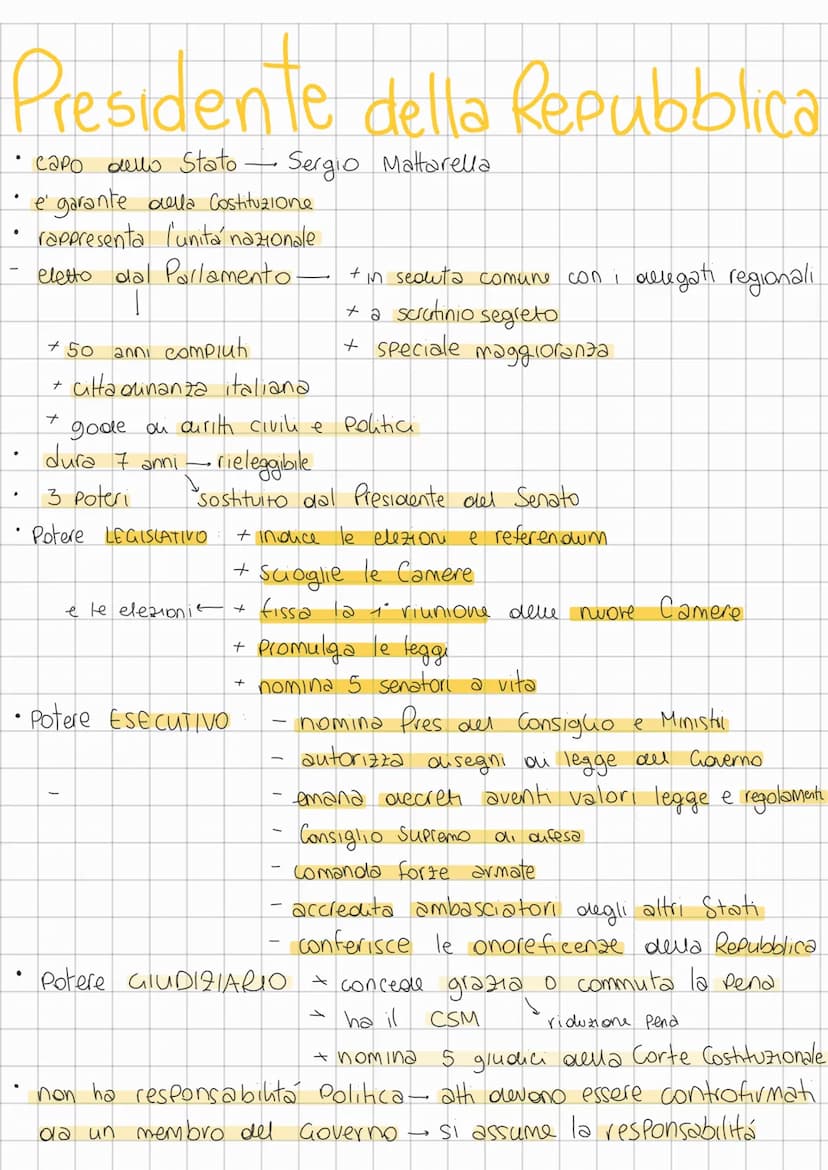 Presidente della Repubblica
• capo dello Stato — Sergio Mattarella
• e' garante della Costituzione
• rappresenta l'unitá nazionale
- eletto dal Parlamento — + in seduta comune con i delegati regionali
+ a scrutinio segreto
+ 50 anni compiuti + speciale maggioranza
+ cittadinanza italiana
+ gode di diritti civili e politici
• dura 7 anni → rieleggibile
• 3 poteri ↘ sostituito dal Presidente del Senato
• Potere LEGISLATIVO: + indice le elezioni e referendum
+ scioglie le Camere
e le elezioni ← + fissa la 1° riunione delle nuove Camere
+ promulga le leggi
+ nomina 5 senatori a vita
• Potere ESECUTIVO: - nomina Pres del Consiglio e Ministri
- autorizza disegni di legge del Governo
- - emana decreti aventi valori legge e regolamenti
- Consiglio Supremo di difesa
- comanda forze armate
- accredita ambasciatori degli altri Stati
- conferisce le onoreficenze della Repubblica
• Potere GIUDIZIARIO + concede grazia o commuta la pena
+ ha il CSM ↘ riduzione pena
+ nomina 5 giudici della Corte Costituzionale
• non ha responsabilitá Politica — atti devono essere controfirmati
da un membro del Governo → si assume la responsabilitá